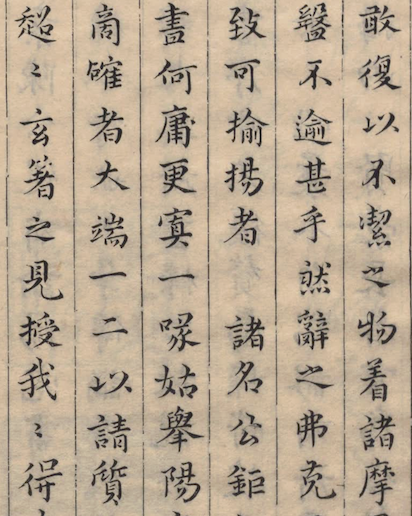 敢復以不潔之物着諸摩
盭不逾甚乎然辭之弗克
致可揄揚者 諸名公鉅
畫何庸更寘一喙姑舉陽
啇確者大端一二以請質
超〻玄箸之見授我〻得